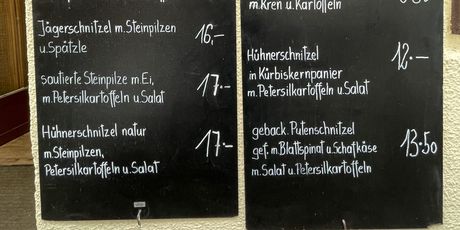 Jägerschnitzel m.Steinpilzen
u.Spätzle
16,-
sautierte Steinpilze m.Ei,
m.Petersilkartoffeln u.Salat
17.-
Hühnerschnitzel natur
m.Steinpilzen,
Petersilkartoffeln u.Salat
17.-
m.Kren u.Kartoffeln
Hühnerschnitzel
in Kürbiskernpanier
m.Petersilkartoffeln u.Salat
12.-
geback. Putenschnitzel
gef. m.Blattspinat u.Schafkäse
m.Salat u.Petersilkartoffeln
13.50